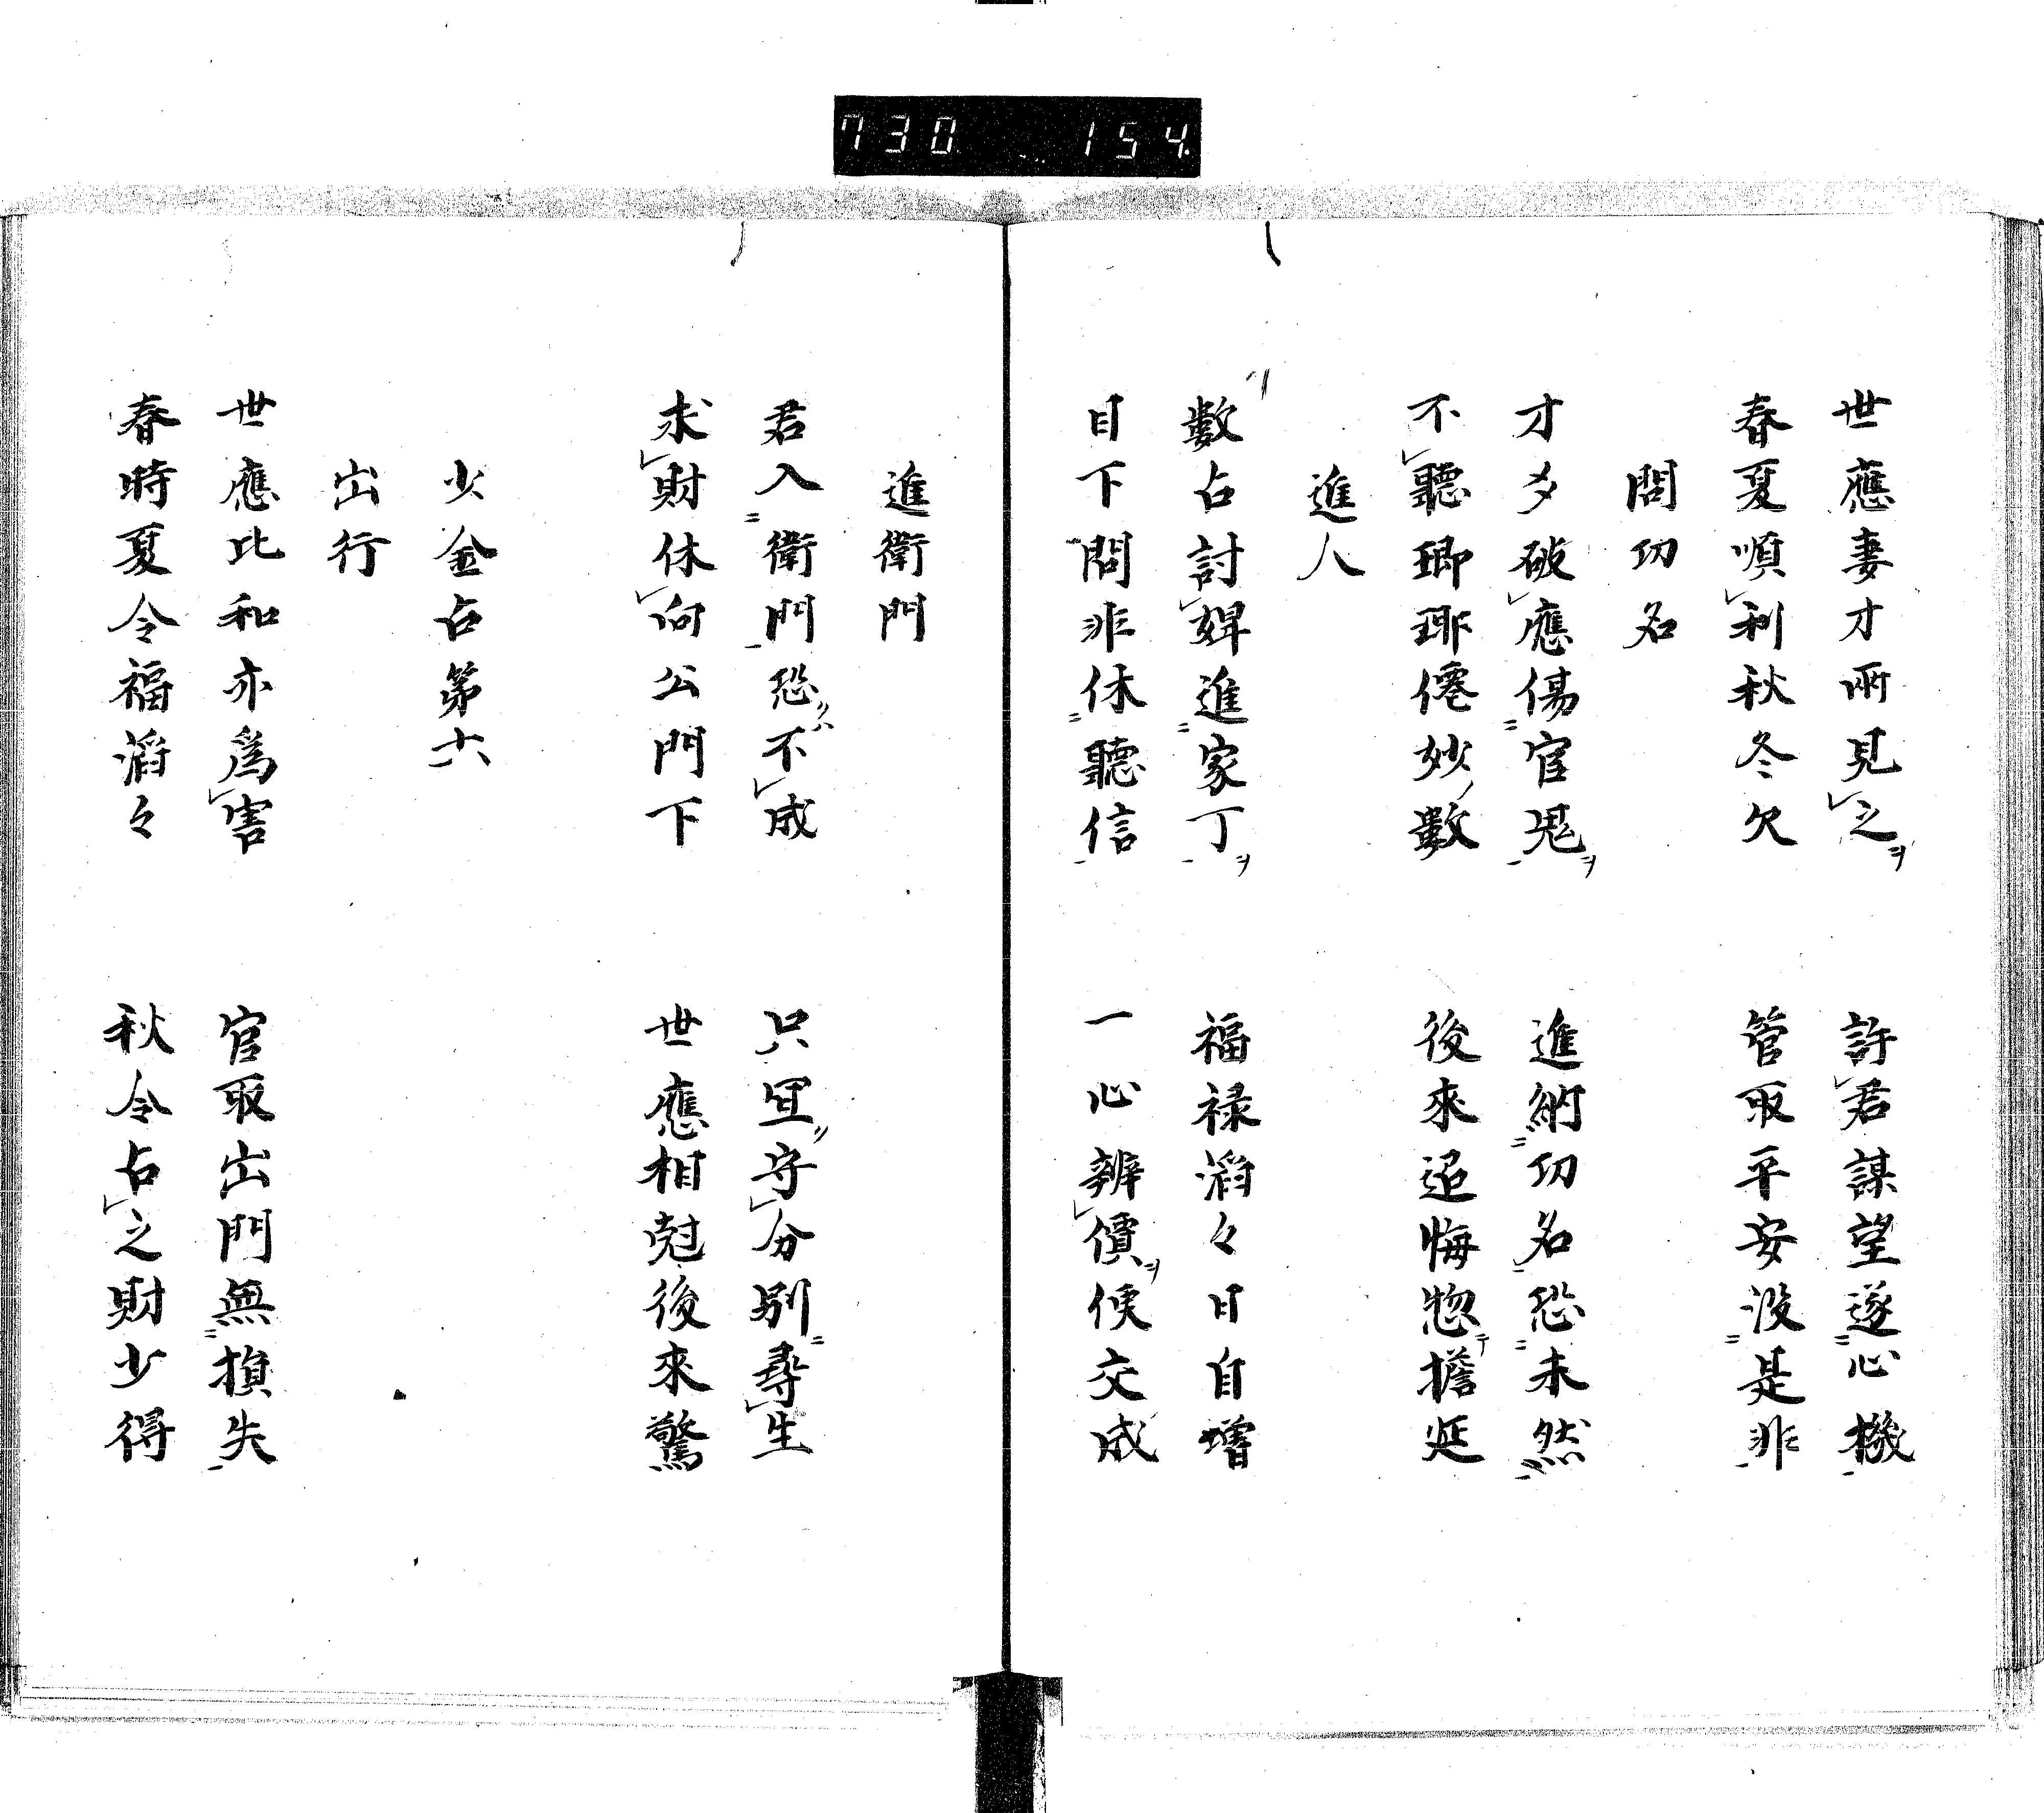 730 154
世應妻才兩見之 許君謀望遂心機
春夏順利秋冬欠 管取平安没是非
問切名
才爻破應傷官鬼 進納切名恐未然
不聽瑯琊僊妙數 後來追悔惣擔延
進人
數占討婢進家丁 福禄滔々日自增
目下問非休聽信 一心辨價便交成
進衛門
君入衛門恐不成 只宜守分別尋生
求財休向公門下 世應相尅後來驚
火金占第六
出行
世應比和亦為害 官取出門無損失
春時夏令福滔々 秋令占之財少得